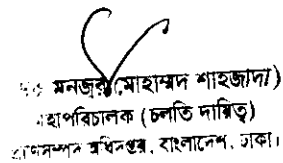 মনজুর মোহাম্মদ শাহজাদা)
মহাপরিচালক (চলতি দায়িত্ব)
প্রাণিসম্পদ অধিদপ্তর, বাংলাদেশ, ঢাকা।